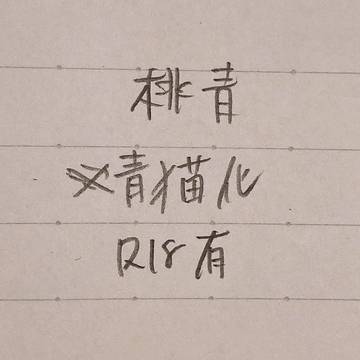 桃青
※青猫化
R18有